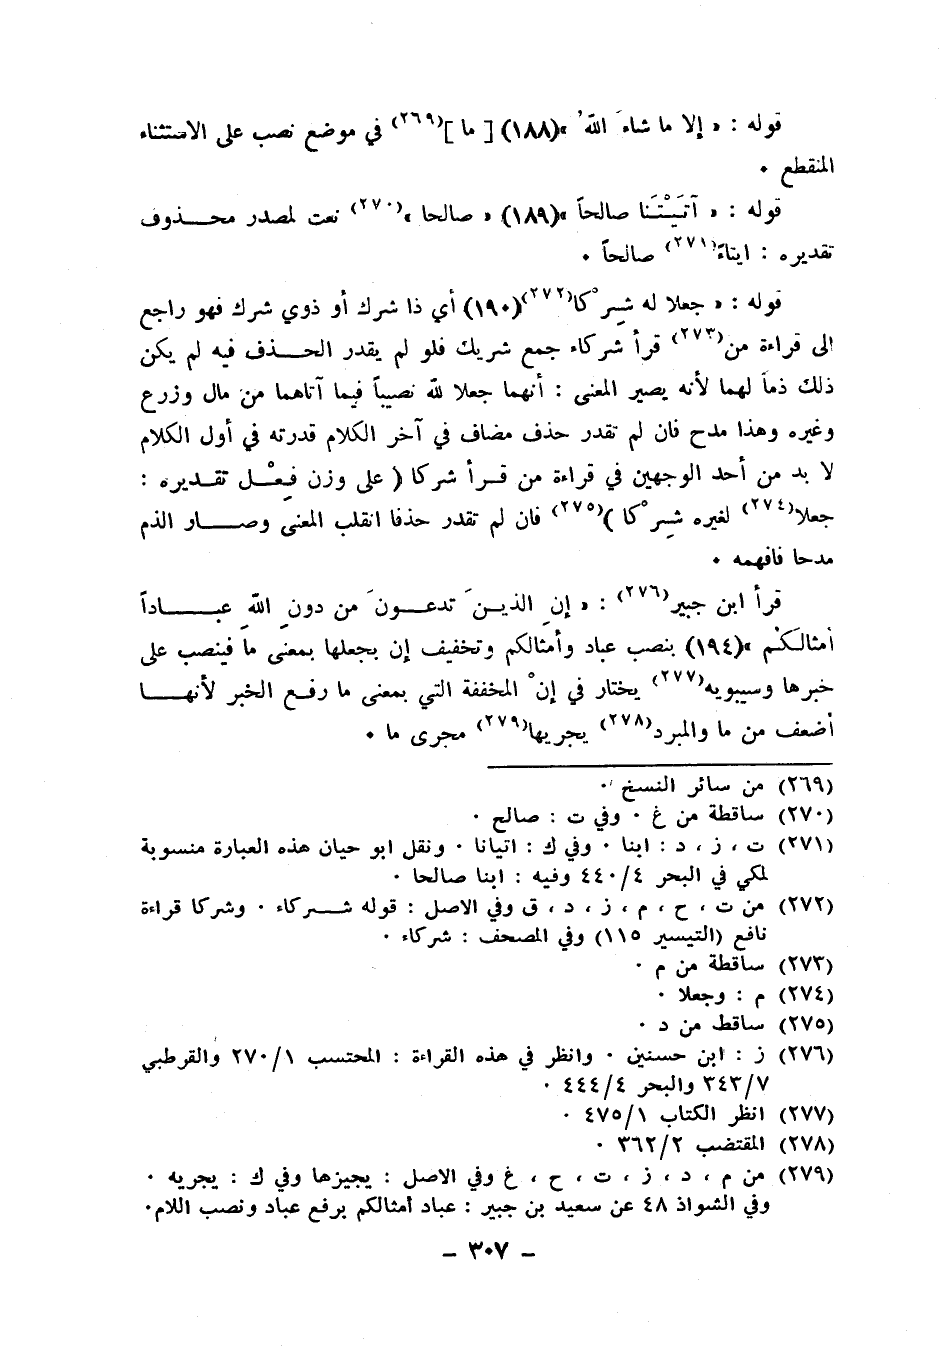 قوله : « إلا ما شاءَ اللهُ »(١٨٨) [ ما ](٢٦٩) في موضع نصب على الاستثناء
المنقطع ٠
قوله : « آتَيْتَنا صالحاً »(١٨٩) « صالحا »(٢٧٠) نعت لمصدر محـــذوف
تقديره : ايتاءً(٢٧١) صالحاً ٠
قوله : « جعلا له شِرْكا(٢٧٢)(١٩٠) أي ذا شرك أو ذوي شرك فهو راجع
الى قراءة من(٢٧٣) قرأ شركاء جمع شريك فلو لم يقدر الحـــذف فيه لم يكن
ذلك ذماً لهما لأنه يصير المعنى : أنهما جعلا لله نصيباً فيما آتاهما من مال وزرع
وغيره وهذا مدح فان لم تقدر حذف مضاف في آخر الكلام قدرته في أول الكلام
لا بد من أحد الوجهين في قراءة من قــرأ شركا ( على وزن فِعْــل تقــديره :
جعلا(٢٧٤) لغيره شِرْكا )(٢٧٥) فان لم تقدر حذفا انقلب المعنى وصـــار الذم
مدحا فافهمه ٠
قرأ ابن جبير(٢٧٦) : « إنِ الذيــنَ تدعـــونَ من دونِ اللهِ عبـــاداً
أمثالَكُم »(١٩٤) بنصب عباد وأمثالكم وتخفيف إن يجعلها بمعنى ما فينصب على
خبرها وسيبويه(٢٧٧) يختار في إنْ المخففة التي بمعنى ما رفــع الخبر لأنهــا
أضعف من ما والمبرد(٢٧٨) يجريها(٢٧٩) مجرى ما ٠
(٢٦٩) من سائر النسخ ٠
(٢٧٠) ساقطة من غ ٠ وفي ت : صالح ٠
(٢٧١) ت ، ز ، د : ابنا ٠ وفي ك : اتيانا ٠ ونقل ابو حيان هذه العبارة منسوبة
لمكي في البحر ٤/٤٤٠ وفيه : ابنا صالحا ٠
(٢٧٢) من ت ، ح ، م ، ز ، د ، ق وفي الاصل : قوله شـــركاء ٠ وشركا قراءة
نافع (التيسير ١١٥) وفي المصحف : شركاء ٠
(٢٧٣) ساقطة من م ٠
(٢٧٤) م : وجعلا ٠
(٢٧٥) ساقط من د ٠
(٢٧٦) ز : ابن حسنين ٠ وانظر في هذه القراءة : المحتسب ١/٢٧٠ والقرطبي
٧/٣٤٣ والبحر ٤/٤٤٤ ٠
(٢٧٧) انظر الكتاب ١/٤٧٥ ٠
(٢٧٨) المقتضب ٢/٣٦٢ ٠
(٢٧٩) من م ، د ، ز ، ت ، ح ، غ وفي الاصل : يجيزها وفي ك : يجريه ٠
وفي الشواذ ٤٨ عن سعيد بن جبير : عباد أمثالكم برفع عباد ونصب اللام٠
– ٣٠٧ –